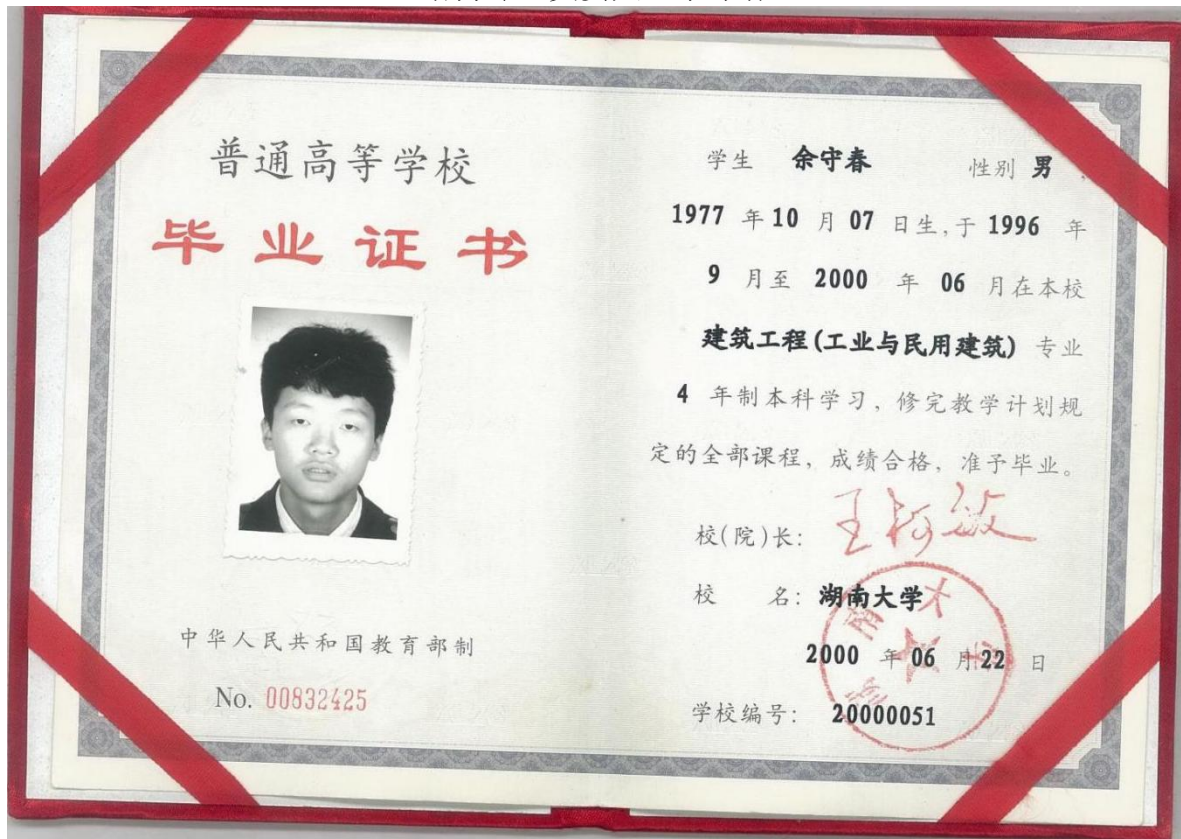 普通高等学校
毕业证书
中华人民共和国教育部制
No. 00832425
学生 余守春 性别 男,
1977 年 10 月 07 日生,于 1996 年
9 月至 2000 年 06 月在本校
建筑工程(工业与民用建筑) 专业
4 年制本科学习, 修完教学计划规
定的全部课程, 成绩合格, 准予毕业。
校(院)长: 王柯敏
校 名: 湖南大学
2000 年 06 月 22 日
学校编号: 20000051
湖南大学